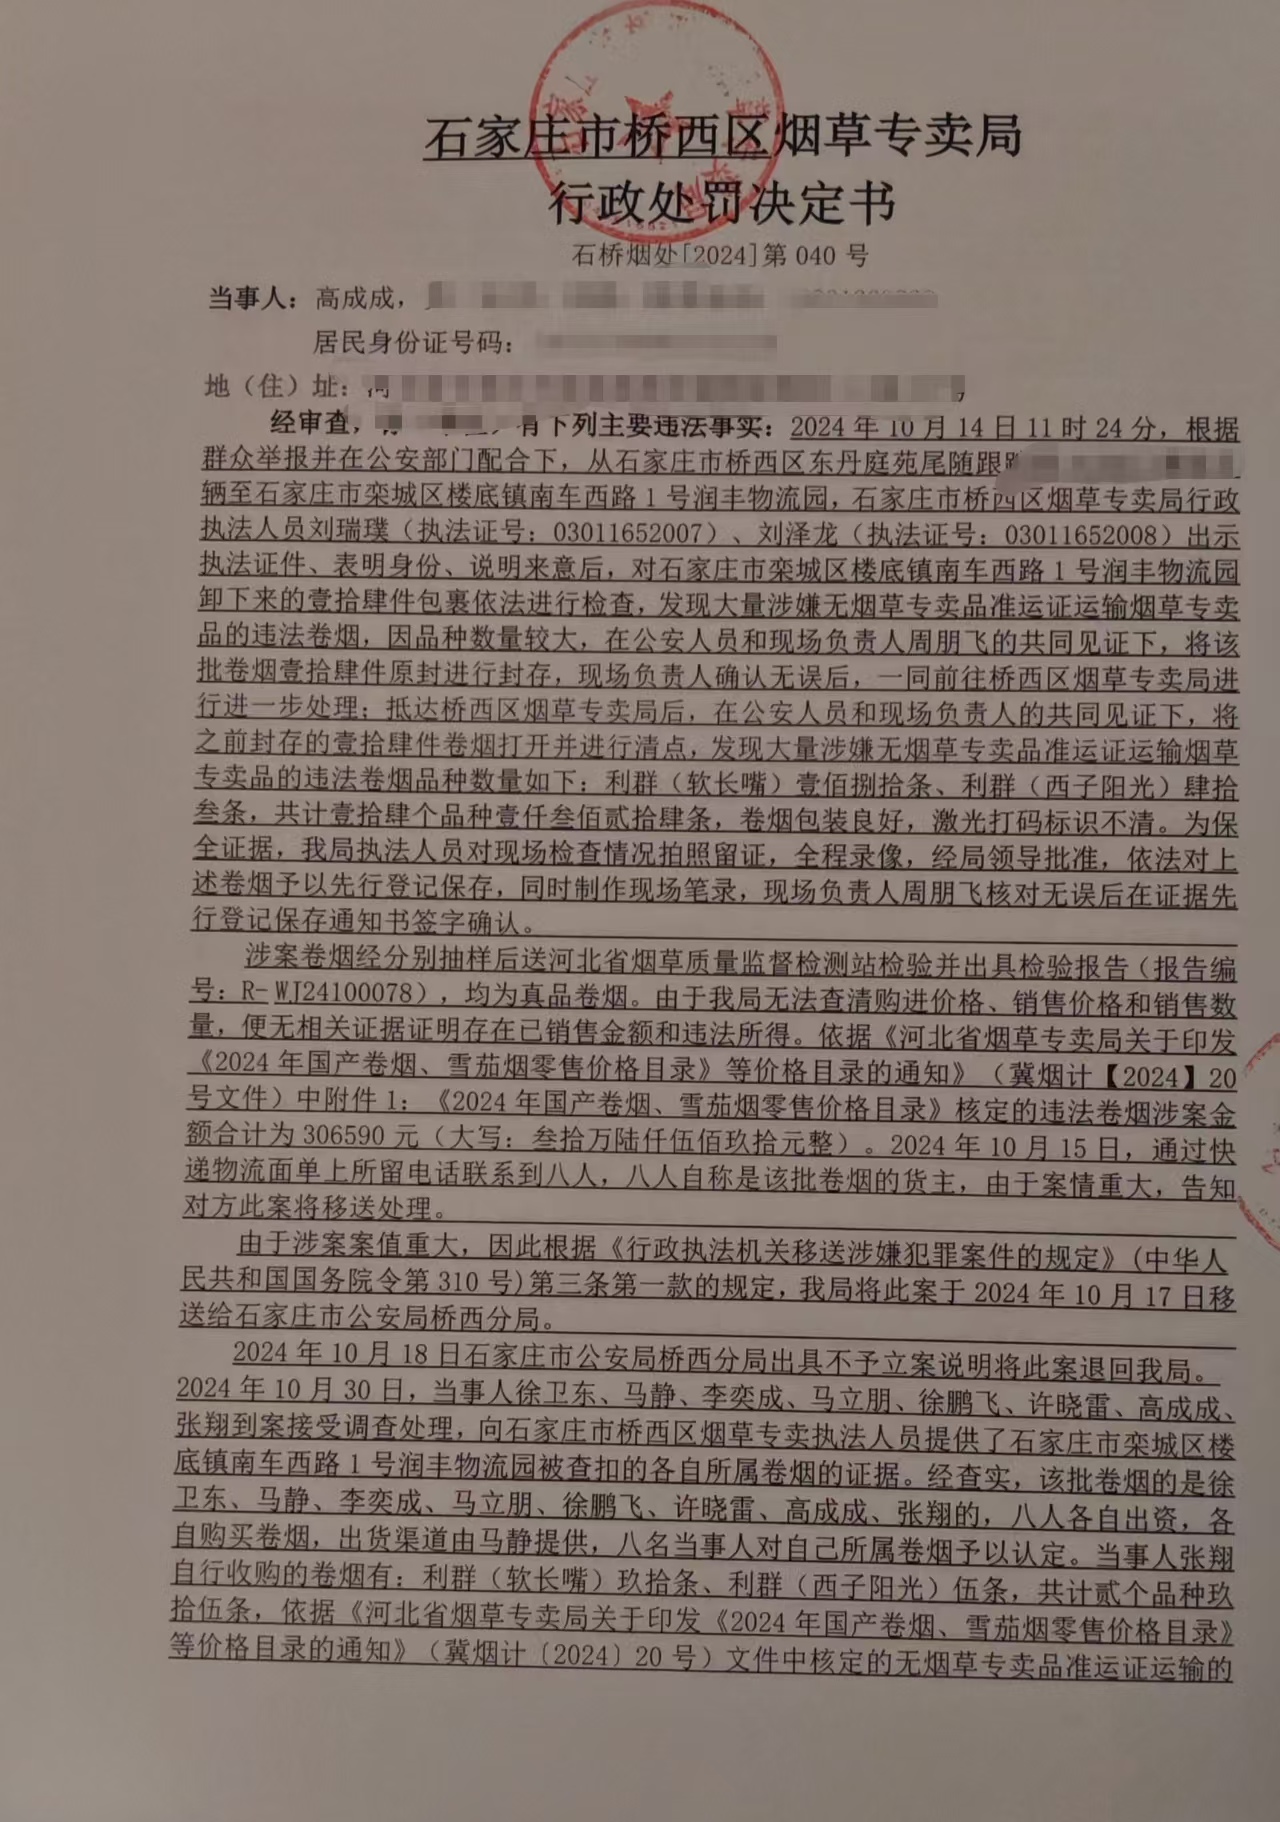 石家庄市桥西区烟草专卖局
行政处罚决定书
石桥烟处[2024]第 040 号
当事人：高成成，
居民身份证号码：
地（住）址：
经审查，有下列主要违法事实：2024 年 10 月 14 日 11 时 24 分，根据
群众举报并在公安部门配合下，从石家庄市桥西区东丹庭苑尾随跟
辆至石家庄市栾城区楼底镇南车西路 1 号润丰物流园，石家庄市桥西区烟草专卖局行政
执法人员刘瑞璞（执法证号：03011652007）、刘泽龙（执法证号：03011652008）出示
执法证件、表明身份、说明来意后，对石家庄市栾城区楼底镇南车西路 1 号润丰物流园
卸下来的壹拾肆件包裹依法进行检查，发现大量涉嫌无烟草专卖品准运证运输烟草专卖
品的违法卷烟，因品种数量较大，在公安人员和现场负责人周朋飞的共同见证下，将该
批卷烟壹拾肆件原封进行封存，现场负责人确认无误后，一同前往桥西区烟草专卖局进
行进一步处理；抵达桥西区烟草专卖局后，在公安人员和现场负责人的共同见证下，将
之前封存的壹拾肆件卷烟打开并进行清点，发现大量涉嫌无烟草专卖品准运证运输烟草
专卖品的违法卷烟品种数量如下：利群（软长嘴）壹佰捌拾条、利群（西子阳光）肆拾
叁条，共计壹拾肆个品种壹仟叁佰贰拾肆条，卷烟包装良好，激光打码标识不清。为保
全证据，我局执法人员对现场检查情况拍照留证，全程录像，经局领导批准，依法对上
述卷烟予以先行登记保存，同时制作现场笔录，现场负责人周朋飞核对无误后在证据先
行登记保存通知书签字确认。
涉案卷烟经分别抽样后送河北省烟草质量监督检测站检验并出具检验报告（报告编
号：R-WJ24100078），均为真品卷烟。由于我局无法查清购进价格、销售价格和销售数
量，便无相关证据证明存在已销售金额和违法所得。依据《河北省烟草专卖局关于印发
《2024 年国产卷烟、雪茄烟零售价格目录》等价格目录的通知》（冀烟计【2024】20
号文件）中附件 1：《2024 年国产卷烟、雪茄烟零售价格目录》核定的违法卷烟涉案金
额合计为 306590 元（大写：叁拾万陆仟伍佰玖拾元整）。2024 年 10 月 15 日，通过快
递物流面单上所留电话联系到八人，八人自称是该批卷烟的货主，由于案情重大，告知
对方此案将移送处理。
由于涉案案值重大，因此根据《行政执法机关移送涉嫌犯罪案件的规定》(中华人
民共和国国务院令第 310 号)第三条第一款的规定，我局将此案于 2024 年 10 月 17 日移
送给石家庄市公安局桥西分局。
2024 年 10 月 18 日石家庄市公安局桥西分局出具不予立案说明将此案退回我局。
2024 年 10 月 30 日，当事人徐卫东、马静、李奕成、马立朋、徐鹏飞、许晓雷、高成成、
张翔到案接受调查处理，向石家庄市桥西区烟草专卖执法人员提供了石家庄市栾城区楼
底镇南车西路 1 号润丰物流园被查扣的各自所属卷烟的证据。经查实，该批卷烟的是徐
卫东、马静、李奕成、马立朋、徐鹏飞、许晓雷、高成成、张翔的，八人各自出资，各
自购买卷烟，出货渠道由马静提供，八名当事人对自己所属卷烟予以认定。当事人张翔
自行收购的卷烟有：利群（软长嘴）玖拾条、利群（西子阳光）伍条，共计贰个品种玖
拾伍条，依据《河北省烟草专卖局关于印发《2024 年国产卷烟、雪茄烟零售价格目录》
等价格目录的通知》（冀烟计〔2024〕20 号）文件中核定的无烟草专卖品准运证运输的